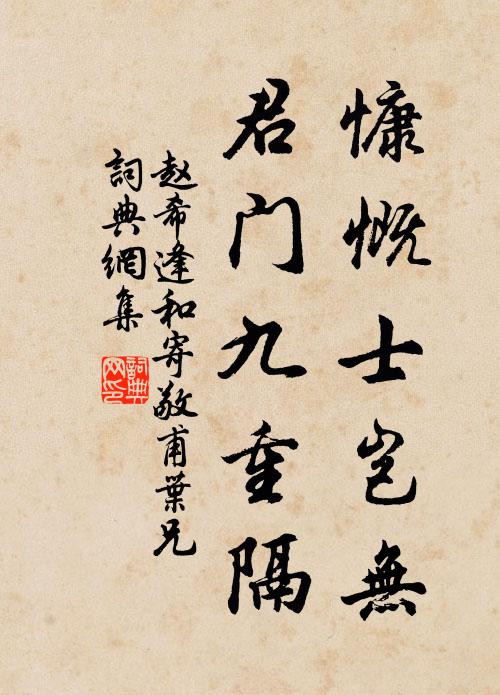 慷慨士岂無
君门九重隔
赵希逢和寄敬甫葉兄
詞典網集
詞典
网印